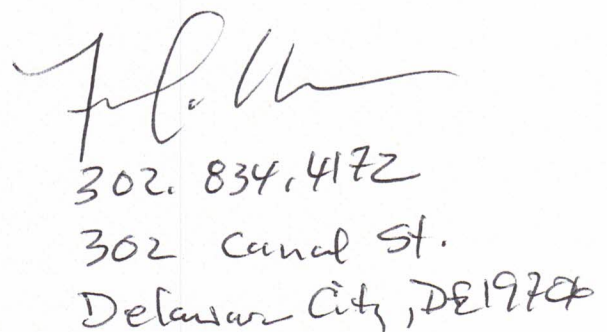 302. 834.4172
302 Canal St.
Delaware City, DE 19706